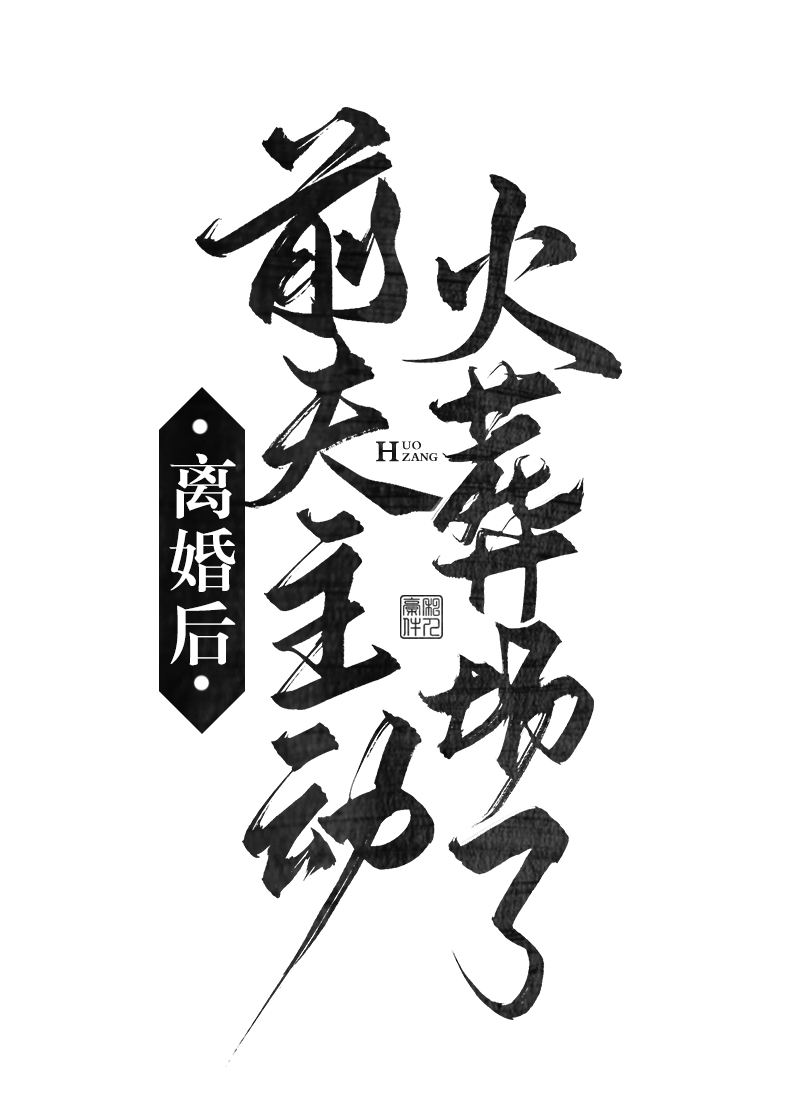 离婚后
前夫主动
火葬场了
HUO
ZANG